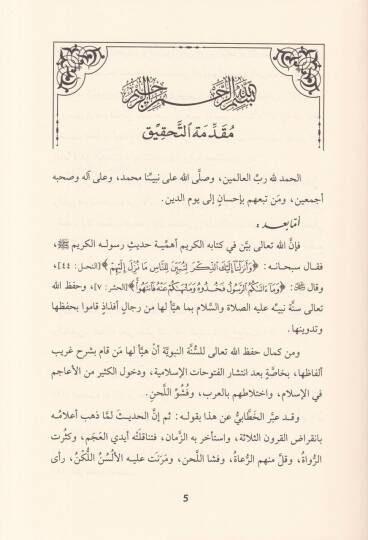 بسم الله الرحمن الرحيم
مُقَدِّمَة التَّحقِيق
الحمد لله ربِّ العالمين، وصلَّى الله على نبيِّنا محمد، وعلى آله وصحبه
أجمعين، ومَن تبعهم بإحسانٍ إلى يوم الدين.
أمّا بعد:
فإنَّ الله تعالى بيَّن في كتابه الكريم أهميَّة حديثِ رسوله الكريم ﷺ،
فقال سبحانه: ﴿وَأَنزَلْنَا إِلَيْكَ الذِّكْرَ لِتُبَيِّنَ لِلنَّاسِ مَا نُزِّلَ إِلَيْهِمْ﴾ [النحل: ٤٤]،
وقال ﷻ: ﴿وَمَا آتَاكُمُ الرَّسُولُ فَخُذُوهُ وَمَا نَهَاكُمْ عَنْهُ فَانتَهُوا﴾ [الحشر: ٧]، وحفظ الله
تعالى سنَّة نبيِّه عليه الصلاة والسَّلام بما هيَّأ لها من رجالٍ أفذاذٍ قاموا بحفظها
وتدوينها.
ومن كمال حفظ الله تعالى للسُّنَّة النبويَّة أنْ هيَّأ لها مَن قام بشرح غريب
ألفاظها، بخاصَّةٍ بعد انتشار الفتوحات الإسلامية، ودخول الكثير من الأعاجم
في الإسلام، واختلاطهم بالعرب، وفُشُوِّ اللَّحن.
وقد عبَّر الخَطَّابيُّ عن هذا بقوله: ثم إنَّ الحديثَ لمَّا ذهب أعلامُه
بانقراض القرون الثلاثة، واستأخر به الزَّمان، فتناقلَتْه أيدي العَجَم، وكثُرت
الرُّواةُ، وقلَّ منهم الرُّعاةُ، وفشا اللَّحن، ومَرَنَت عليه الألسُنُ اللُّكْنُ، رأى
5